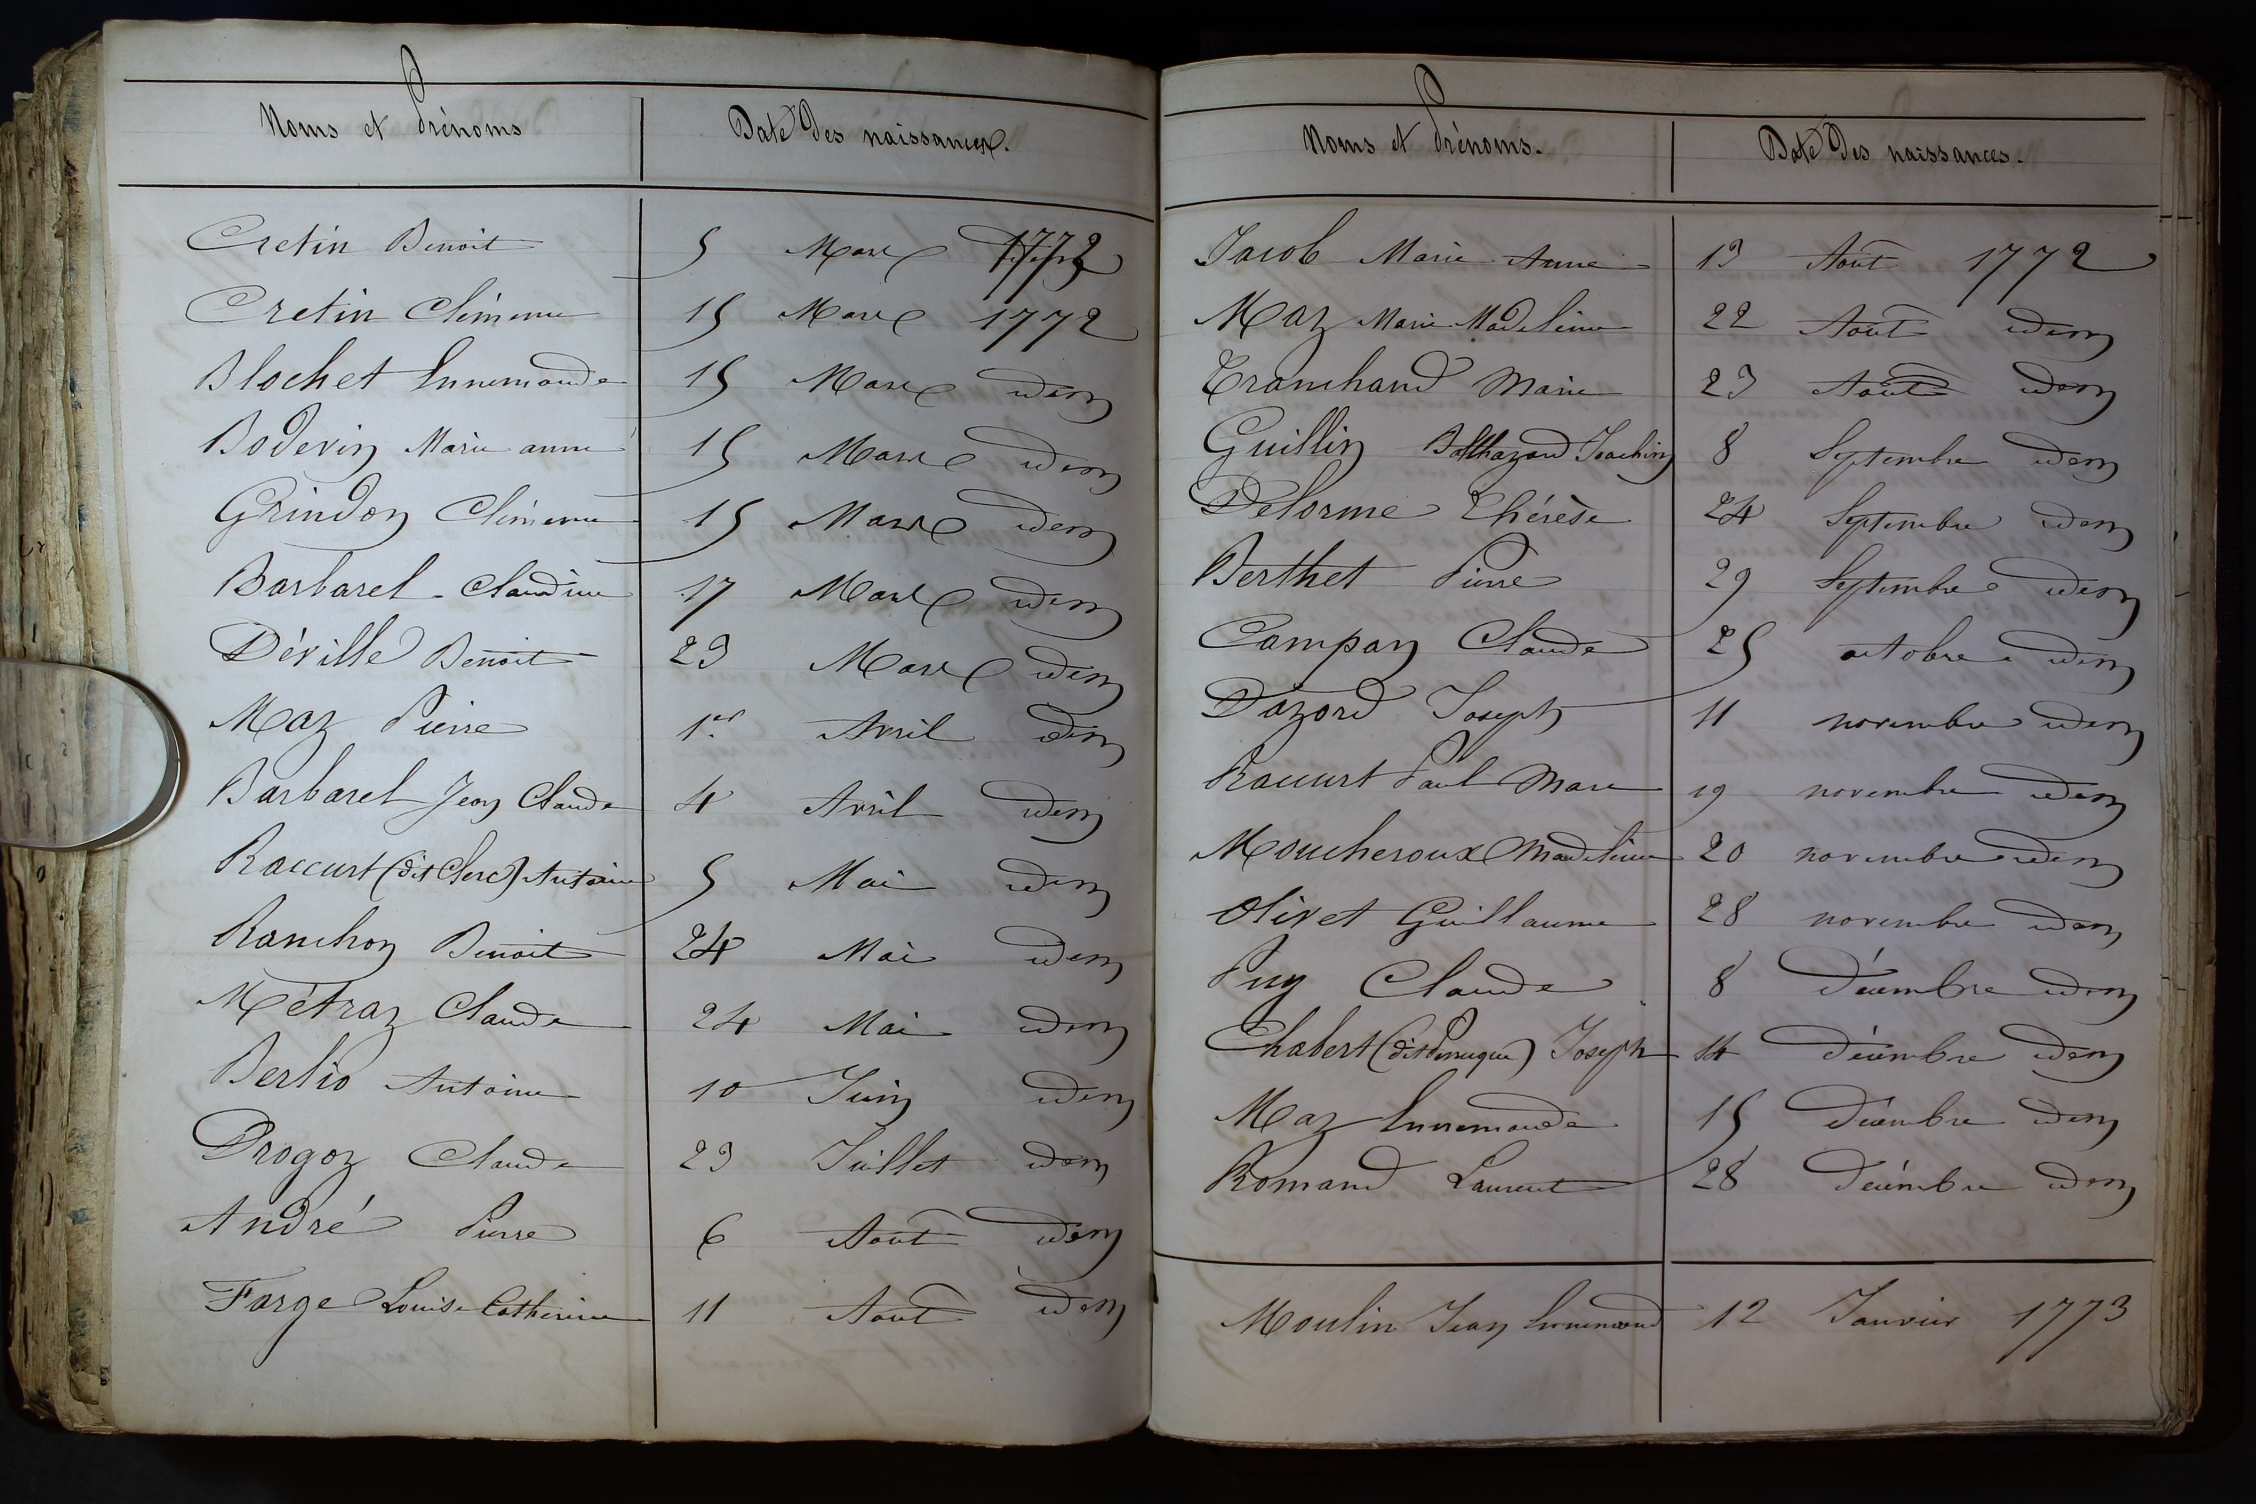 Noms et Prénoms Date des naissances.
Cretin Benoit 5 Mars 1772
Cretin Clémence 15 Mars 1772
Blochet Ennemonde 15 Mars idem
Boderin Marie anne 15 Mars idem
Grindon Clémence 15 Mars idem
Barbarel Claudine 17 Mars idem
Déville Benoit 23 Mars idem
Maz Pierre 1er Avril idem
Barbarel Jean Claude 4 Avril idem
Raccurt (dit Clerc) Antoine 5 Mai idem
Ranchon Benoit 24 Mai idem
Métraz Claude 24 Mai idem
Berlio Antoine 10 Juin idem
Drogoz Claude 23 Juillet idem
André Pierre 6 Aout idem
Farge Louise Catherine 11 Aout idem
Noms et Prénoms. Date des naissances.
Jacob Marie Anne 13 Aout 1772
Maz Marie Madeleine 22 Aout idem
Tranchand Marie 23 Aout idem
Guillin Balthazard Joachim 8 Septembre idem
Delorme Thérèse 24 Septembre idem
Berthet Pierre 29 Septembre idem
Campan Claude 25 octobre idem
Dazord Joseph 11 novembre idem
Raccurt Paul Marc 19 novembre idem
Moucheroux Madeleine 20 novembre idem
Olivet Guillaume 28 novembre idem
Puy Claude 8 décembre idem
Chabert (dit Perruque) Joseph 14 décembre idem
Maz Ennemonde 15 Décembre idem
Romand Laurent 28 Décembre idem
Moulin Jean Ennemond 12 Janvier 1773